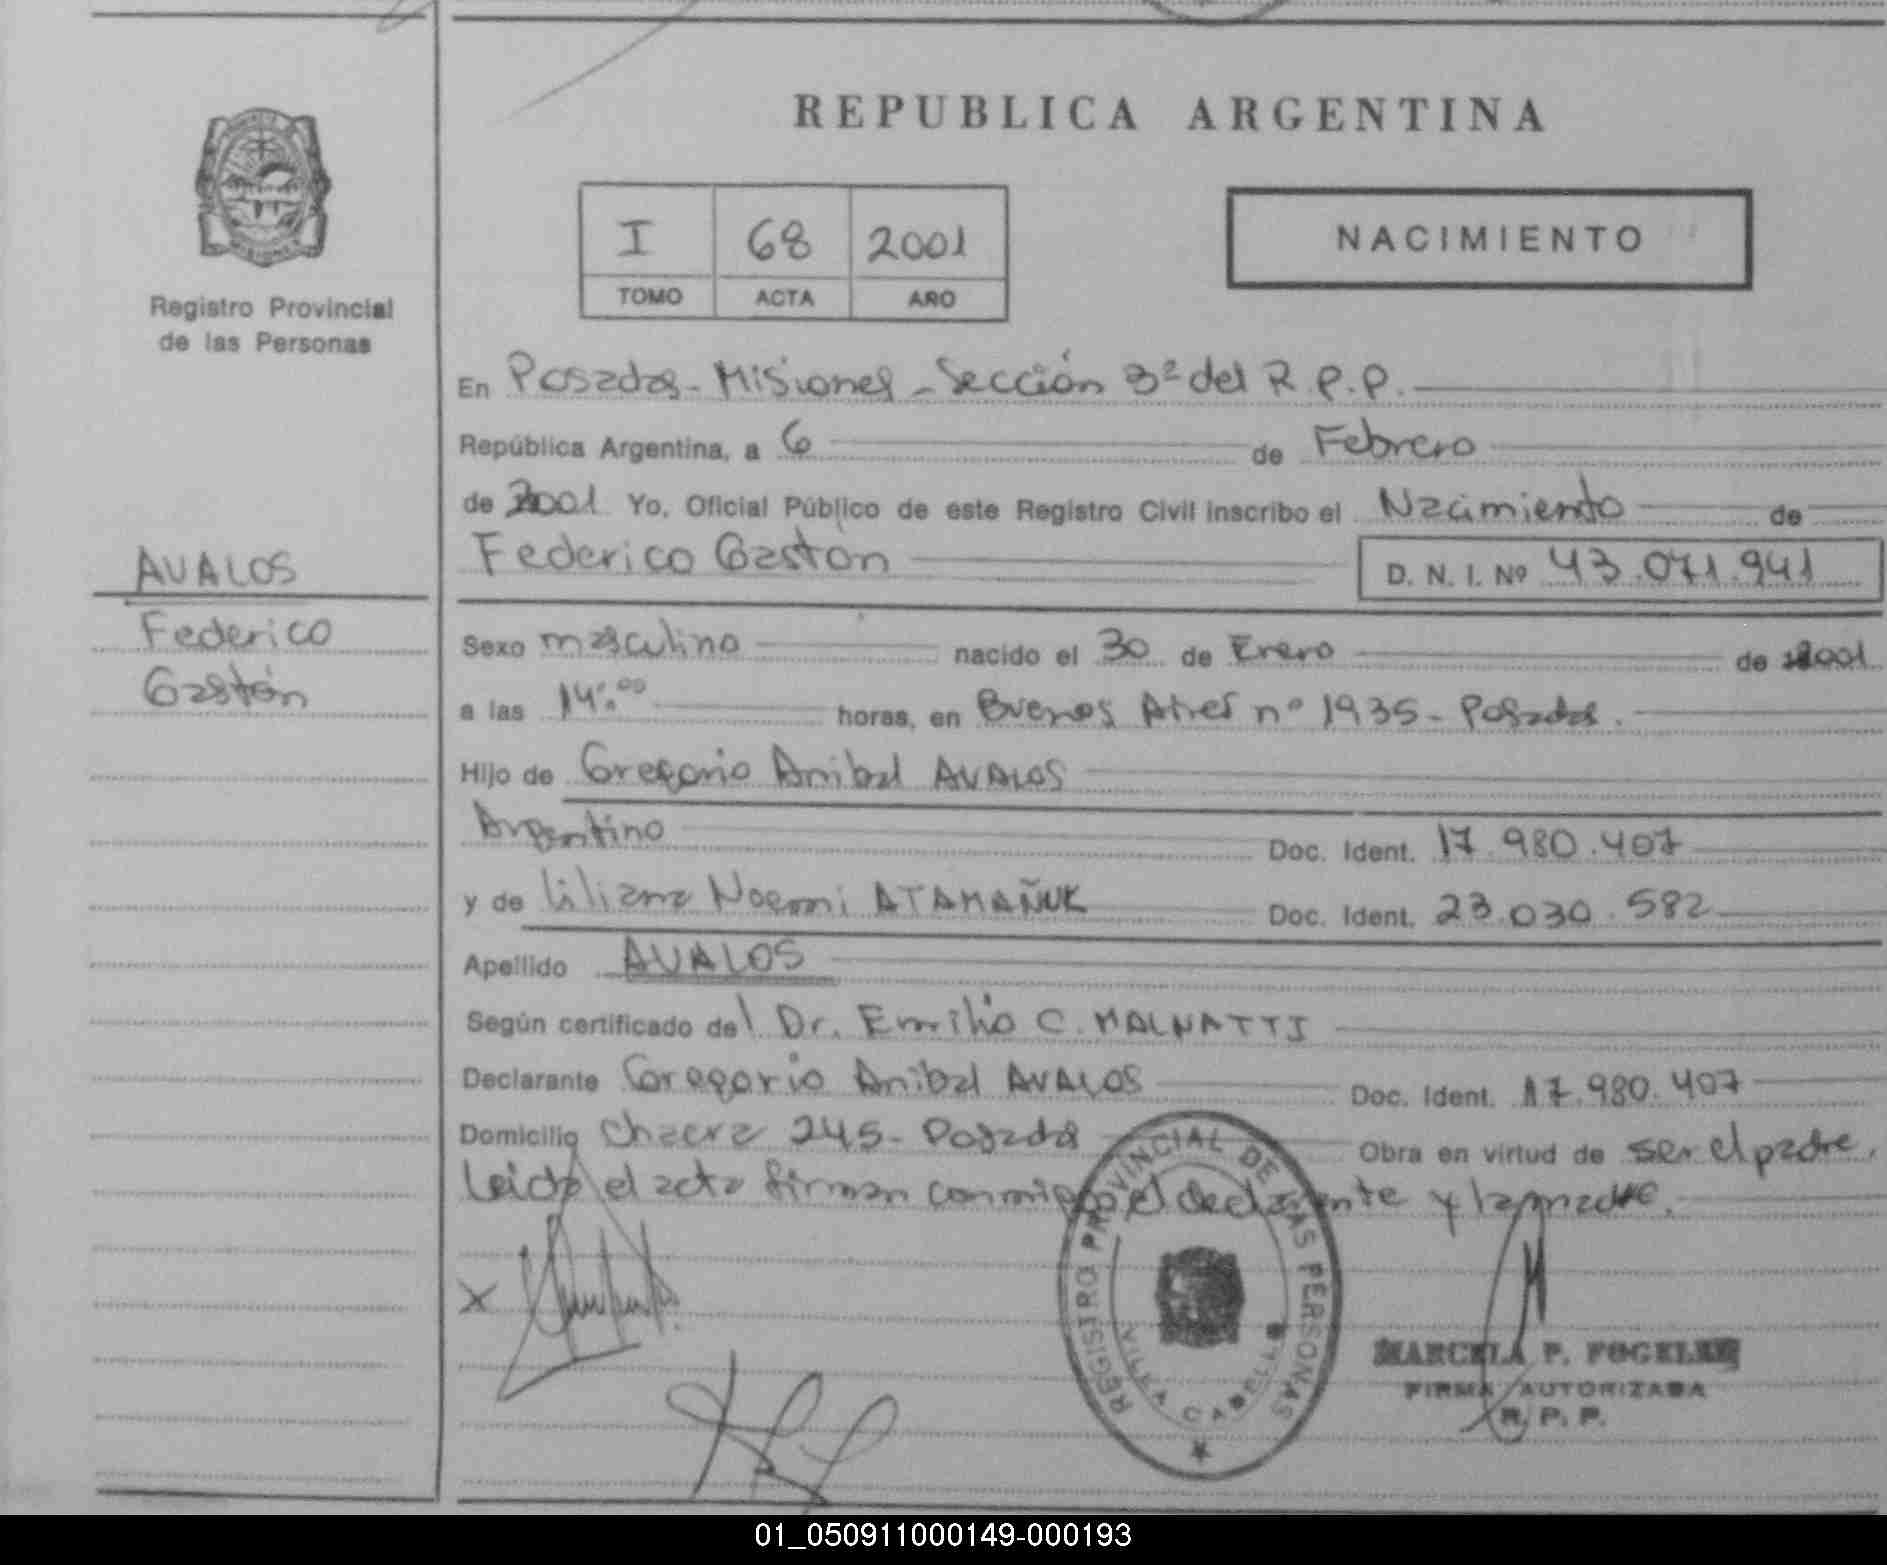 REPUBLICA ARGENTINA
I 68 2001
TOMO ACTA AÑO
NACIMIENTO
Registro Provincial
de las Personas
En Posadas - Misiones - Sección 3ª del R.P.P.
República Argentina, a 6 de Febrero
de 2001 Yo, Oficial Público de este Registro Civil inscribo el Nacimiento de
Federico Gastón D. N. I. Nº 43.071.941
AVALOS
Federico
Gastón
Sexo masculino nacido el 30 de Enero de 2001
a las 14:00 horas, en Buenos Aires nº 1935 - Posadas.
Hijo de Gregorio Anibal AVALOS
Argentino Doc. Ident. 17.980.407
y de Liliana Noemi ATAMAÑUK Doc. Ident. 23.030.582
Apellido AVALOS
Según certificado del Dr. Emilio C. MALNATTI
Declarante Gregorio Anibal AVALOS Doc. Ident. 17.980.407
Domicilio Chacra 245 - Posadas Obra en virtud de ser el padre.
Leida el acta firman conmigo el declarante y la madre.
REGISTRO PROVINCIAL DE LAS PERSONAS
VILLA CABELLO
X
MARCELA P. FOGELER
FIRMA AUTORIZADA
R. P. P.
01_050911000149-000193